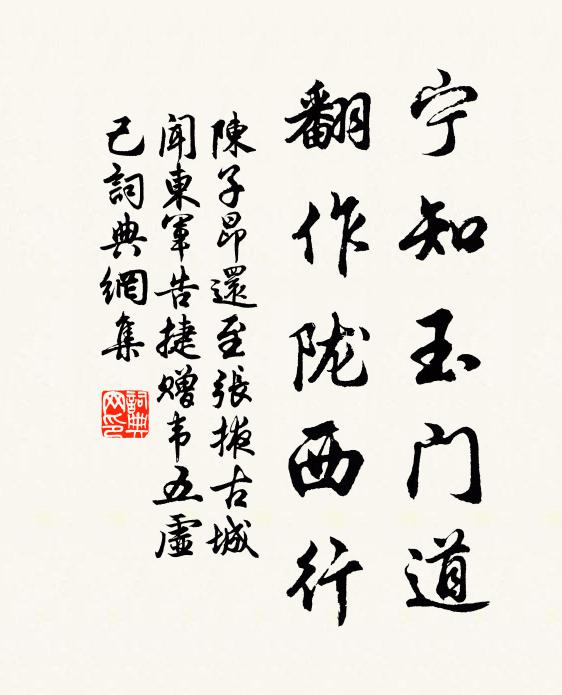 宁知玉门道
翻作陇西行
陳子昂還至張掖古城
聞東軍告捷贈韦五虛
己詞典網集
詞典网印